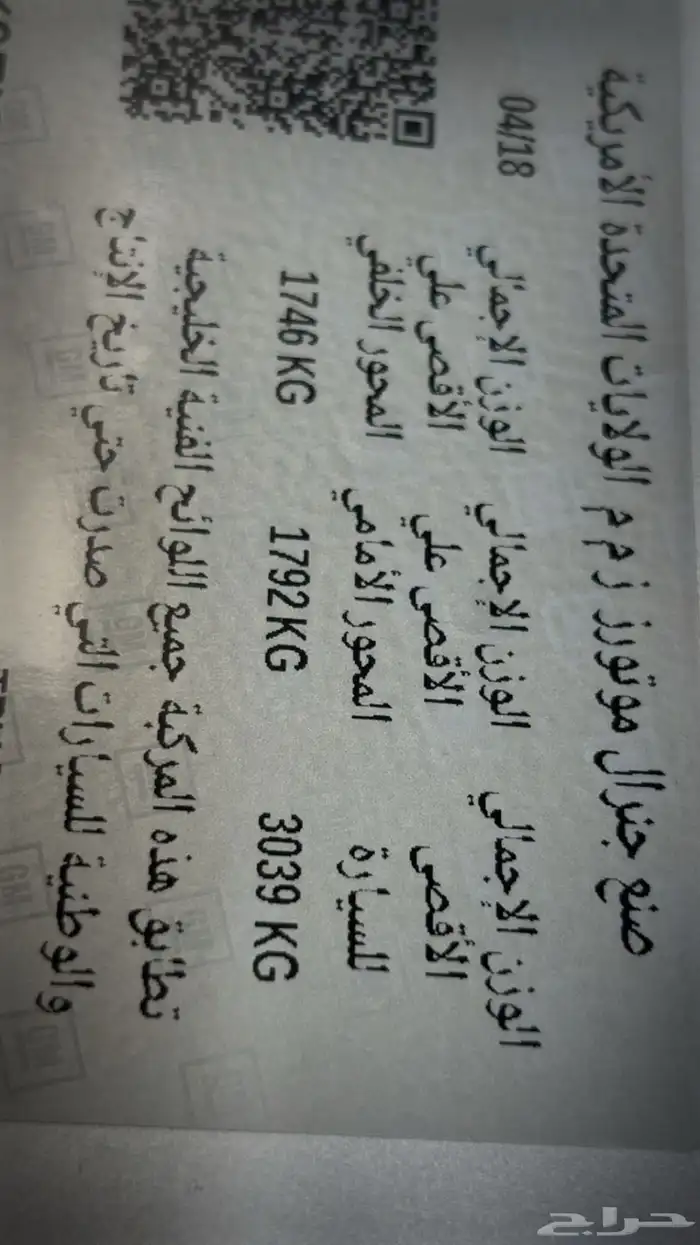 صنع جنرال موتورز ز م م الولايات المتحدة الأمريكية
04/18
الوزن الإجمالي الأقصى للسيارة
3039 KG
الوزن الإجمالي الأقصى علي المحور الأمامي
1792 KG
الوزن الإجمالي الأقصى علي المحور الخلفي
1746 KG
تطابق هذه المركبة جميع اللوائح الفنية الخليجية
والوطنية للسيارات التي صدرت حتي تاريخ الإنتاج
حراج